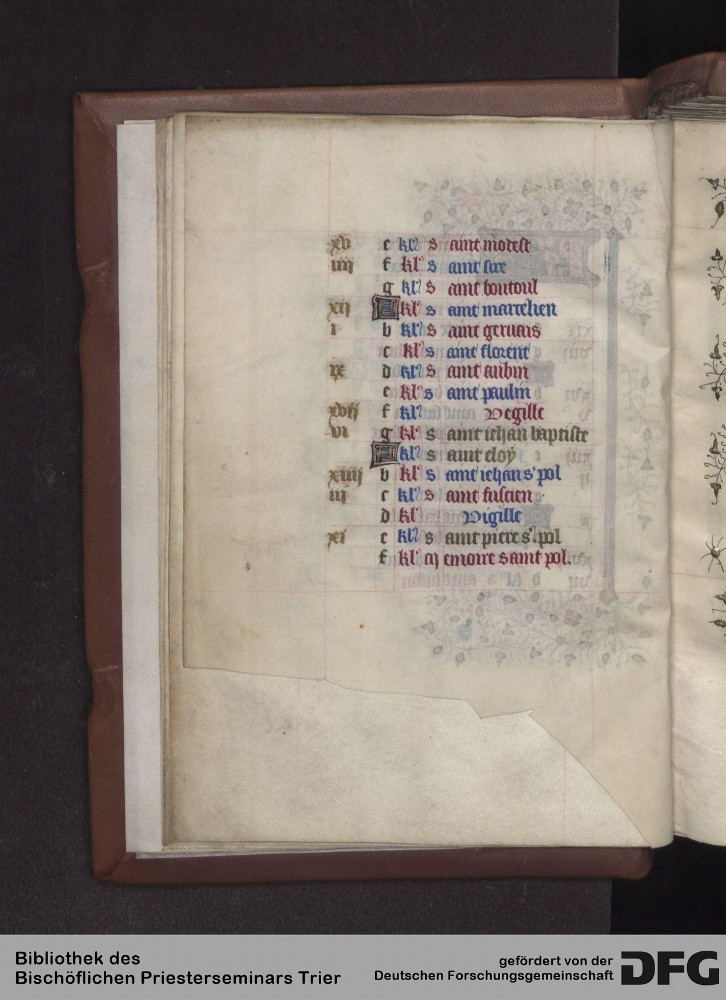 xv e kl' s aint modest
iiii f kl' s aint
g kl' s aint boutoul
xii A kl' s aint marcelien
i b kl' s aint geruais
c kl' s aint florent
ix d kl' s aint aubin
e kl' s aint paulin
xvii f kl' Vegille
vi g kl' s aint iehan baptiste
A kl' s aint eloy
xiiii b kl' s aint iehan s' pol
iii c kl' s aint fuscien
d kl' Vigille
xi e kl' s aint piere s'. pol
f kl' m emoire saint pol.
Bibliothek des
Bischöflichen Priesterseminars Trier
gefördert von der
Deutschen Forschungsgemeinschaft
DFG